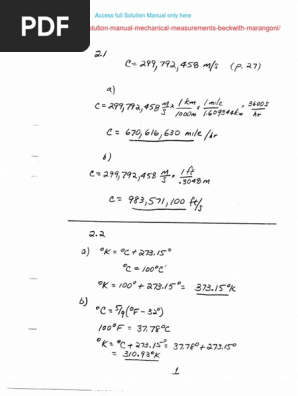 PDF
Access full Solution Manual only here
olution-manual-mechanical-measurements-beckwith-marangoni/
2.1
C = 299,792,458 m/s (p. 27)
a)
C = 299,792,458 m/s × 1 km/1000m × 1 mile/1.609344km × 3600s/hr
C = 670,616,630 mile/hr
b)
C = 299,792,458 m/s × 1 ft/.3048 m
C = 983,571,100 ft/s
2.2
a) °K = °C + 273.15°
°C = 100°C
°K = 100° + 273.15° = 373.15°K
b)
°C = 5/9(°F - 32°)
100°F = 37.78°C
°K = °C + 273.15° = 37.78° + 273.15°
= 310.93°K
1